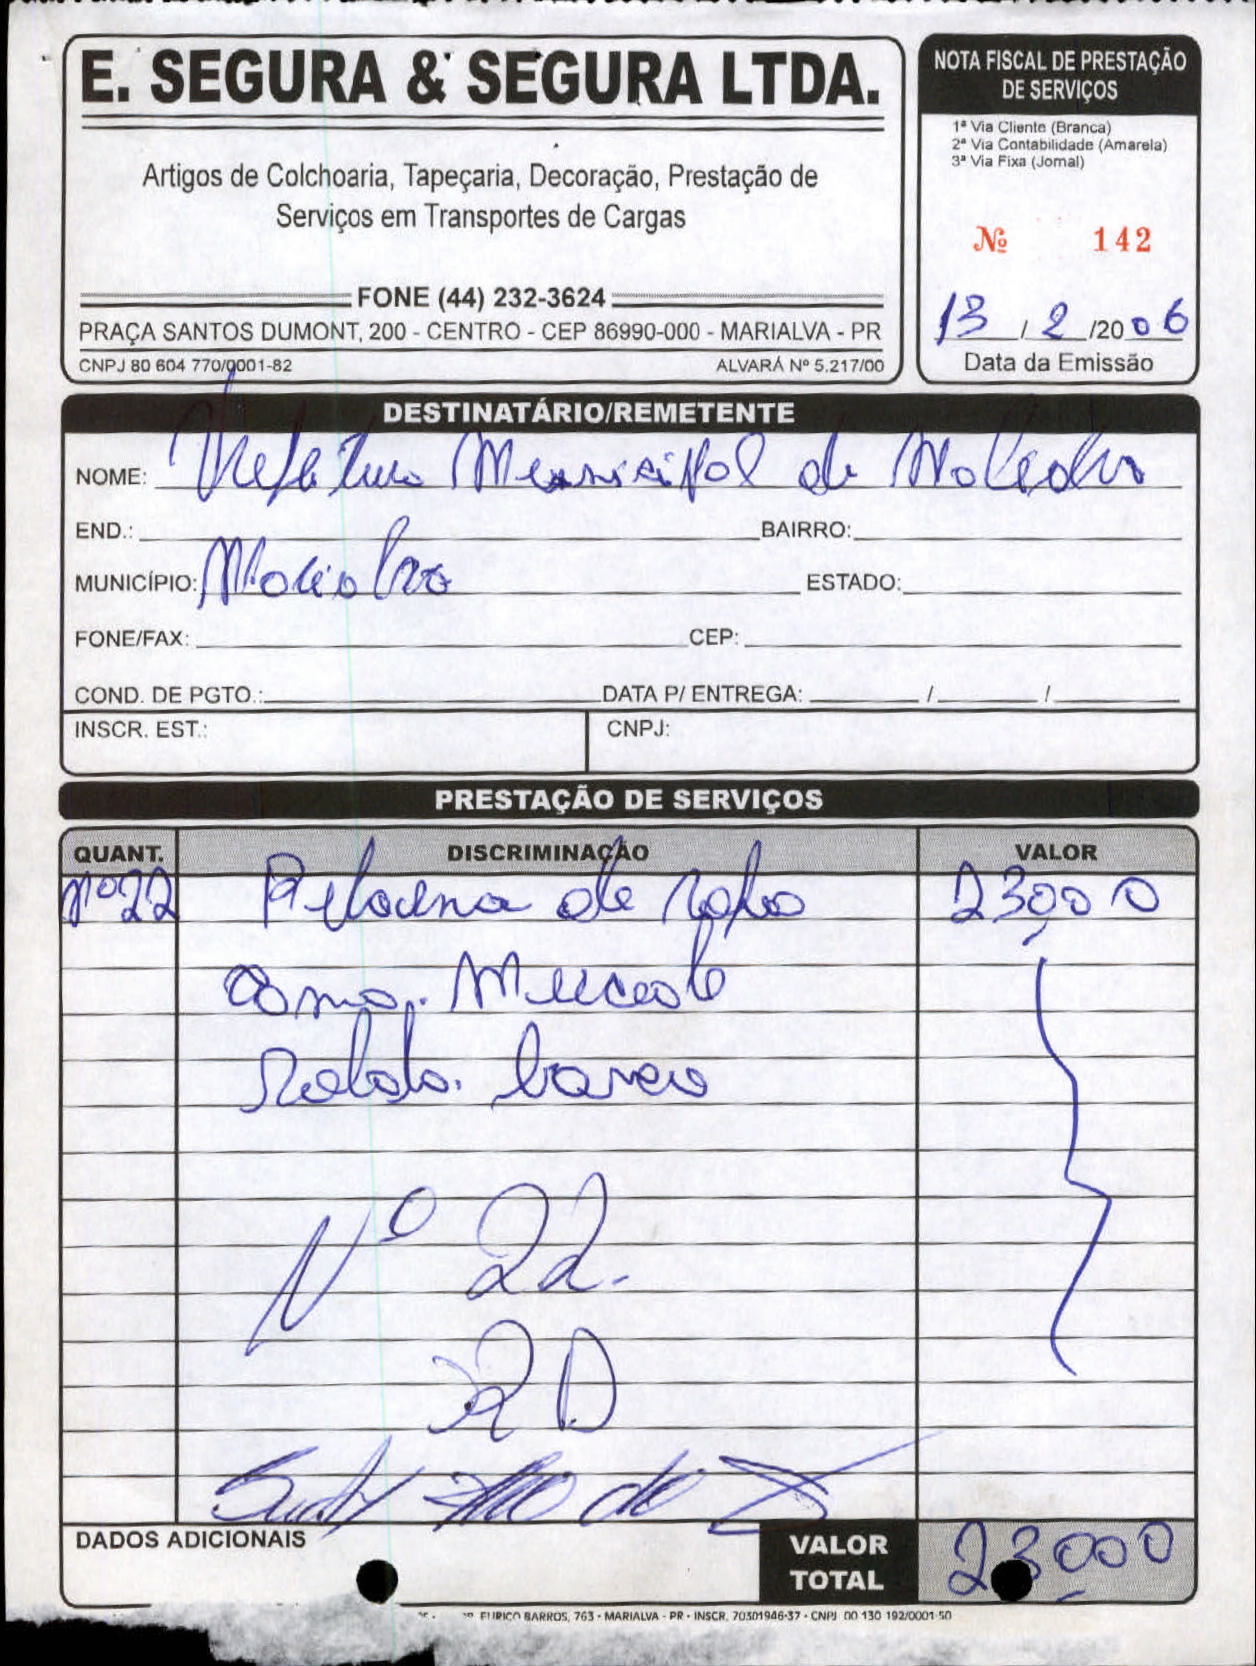 E. SEGURA & SEGURA LTDA.
Artigos de Colchoaria, Tapeçaria, Decoração, Prestação de
Serviços em Transportes de Cargas
FONE (44) 232-3624
PRAÇA SANTOS DUMONT, 200 - CENTRO - CEP 86990-000 - MARIALVA - PR
CNPJ 80 604 770/0001-82 ALVARÁ Nº 5.217/00
NOTA FISCAL DE PRESTAÇÃO
DE SERVIÇOS
1ª Via Cliente (Branca)
2ª Via Contabilidade (Amarela)
3ª Via Fixa (Jornal)
Nº 142
13 / 2 /2006
Data da Emissão
DESTINATÁRIO/REMETENTE
NOME: Prefeitura Municipal de Marialva
END.: BAIRRO:
MUNICÍPIO: Marialva ESTADO:
FONE/FAX: CEP:
COND. DE PGTO.: DATA P/ ENTREGA: / /
INSCR. EST.: CNPJ:
PRESTAÇÃO DE SERVIÇOS
QUANT. DISCRIMINAÇÃO VALOR
Nº 22 Reforma de 230,00
banco
Nº 22.
VALOR
TOTAL 230,00
DADOS ADICIONAIS
EURICO BARROS, 763 - MARIALVA - PR - INSCR. 70301946-37 - CNPJ 00 130 192/0001-50